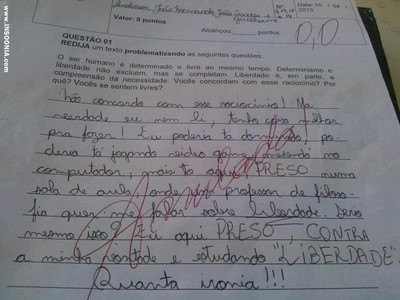 www.INSOONIA.com
Valor: 8 pontos
Alcançou: pontos
0,0
QUESTÃO 01
REDIJA um texto problematizando as seguintes questões:
O ser humano é determinado e livre ao mesmo tempo. Determinismo e
liberdade não excluem, mas se completam. Liberdade é, em parte, a
compreensão da necessidade. Vocês concordam com esse raciocínio? Por
quê? Vocês se sentem livres?
Não concordo com esse raciocínio! Na
verdade eu nem li, tenho coisa melhor
pra fazer! Eu poderia tá dormindo, po-
deria tá jogando video game, mexendo no
computador, mais to aqui PRESO numa
sala de aula, onde um professor de filoso-
fia quer me falar sobre liberdade.
mesmo isso? Eu aqui PRESO, CONTRA
a minha vontade e estudando "LIBERDADE".
Quanta ironia!!!